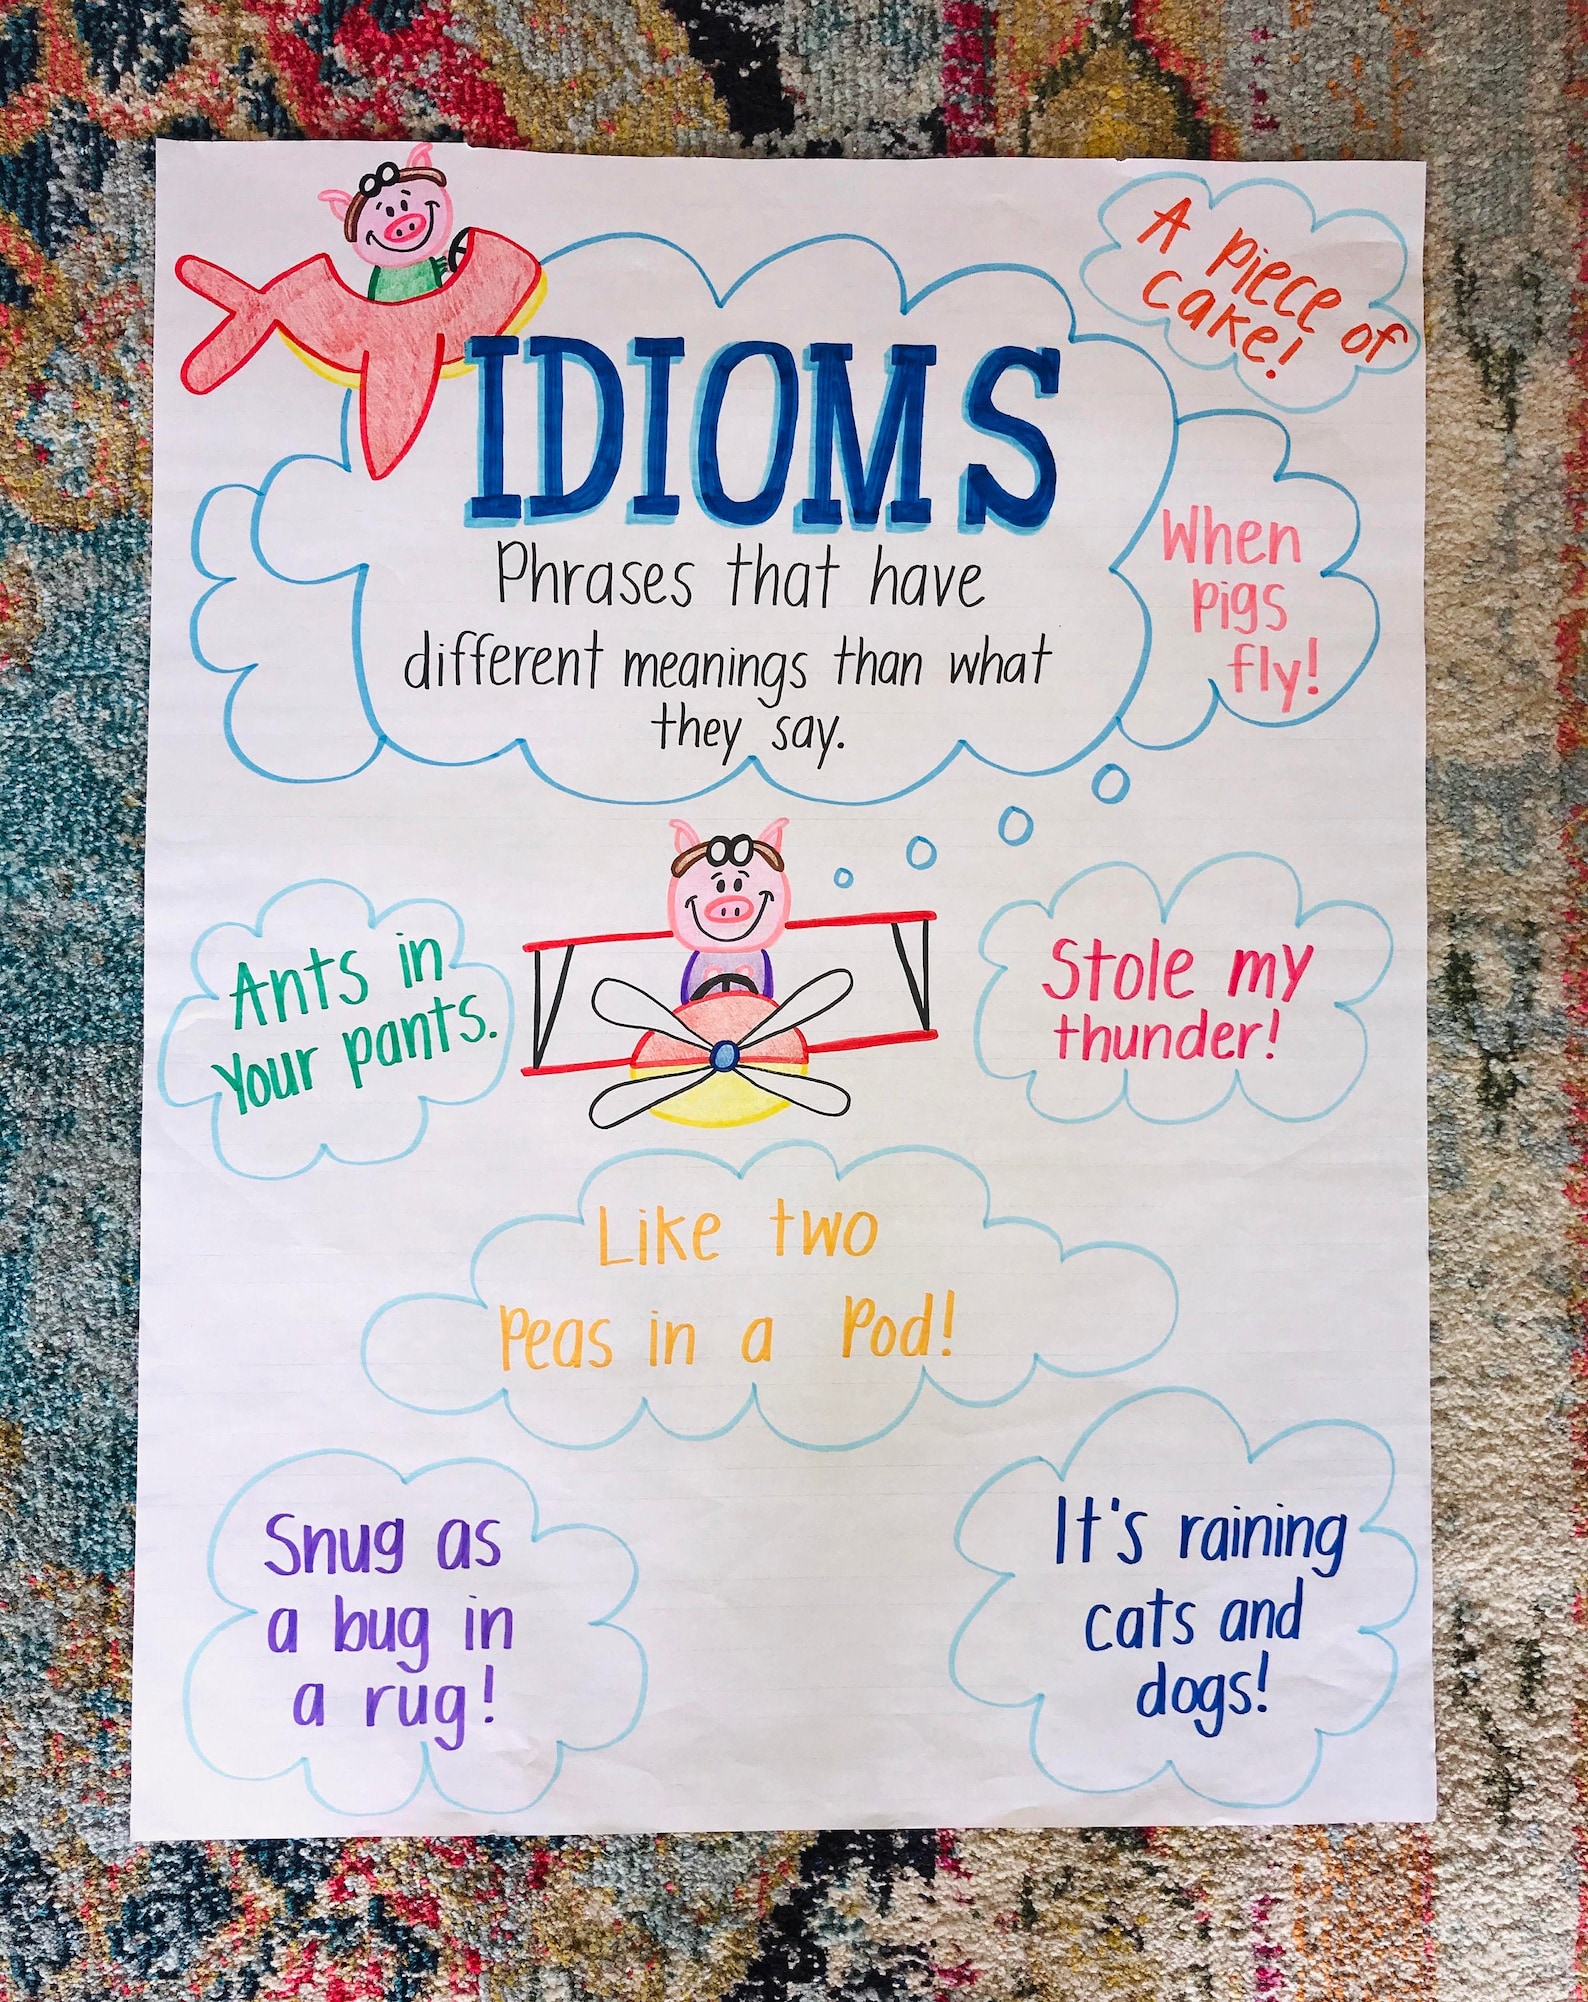 IDIOMS
Phrases that have
different meanings than what
they say.
A piece of
cake!
When
pigs
fly!
Ants in
your pants.
Stole my
thunder!
Like two
Peas in a Pod!
Snug as
a bug in
a rug!
It's raining
cats and
dogs!